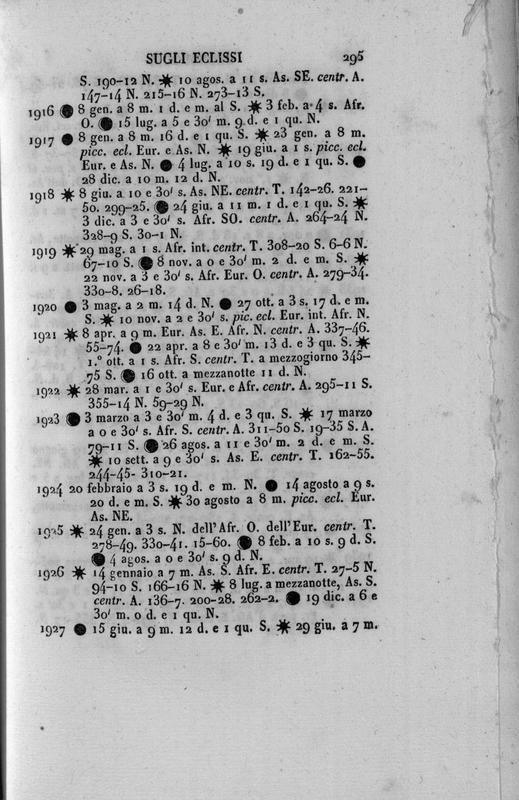 SUGLI ECLISSI 295
S. 190-12 N. ☀ 10 agos. a 11 s. As. SE. centr. A.
147-14 N. 215-16 N. 273-13 S.
1916 ● 8 gen. a 8 m. 1 d. e m. al S. ☀ 3 feb. a 4 s. Afr.
O. ● 15 lug. a 5 e 30' m. 9 d. e 1 qu. N.
1917 ● 8 gen. a 8 m. 16 d. e 1 qu. S. ☀ 23 gen. a 8 m.
picc. ecl. Eur. e As. N. ☀ 19 giu. a 1 s. picc. ecl.
Eur. e As. N. ● 4 lug. a 10 s. 19 d. e 1 qu. S. ●
28 dic. a 10 m. 12 d. N.
1918 ☀ 8 giu. a 10 e 30' s. As. NE. centr. T. 142-26. 221-
50. 299-25. ● 24 giu. a 11 m. 1 d. e 1 qu. S. ☀
3 dic. a 3 e 30' s. Afr. SO. centr. A. 264-24 N.
328-9 S. 30-1 N.
1919 ☀ 29 mag. a 1 s. Afr. int. centr. T. 308-20 S. 6-6 N.
67-10 S. ● 8 nov. a 0 e 30' m. 2 d. e m. S. ☀
22 nov. a 3 e 30' s. Afr. Eur. O. centr. A. 279-34.
330-8. 26-18.
1920 ● 3 mag. a 2 m. 14 d. N. ● 27 ott. a 3 s. 17 d. e m.
S. ☀ 10 nov. a 2 e 30' s. pic. ecl. Eur. int. Afr. N.
1921 ☀ 8 apr. a 9 m. Eur. As. E. Afr. N. centr. A. 337-46.
55-74. ● 22 apr. a 8 e 30' m. 13 d. e 3 qu. S. ☀
1.° ott. a 1 s. Afr. S. centr. T. a mezzogiorno 345-
75 S. ● 16 ott. a mezzanotte 11 d. N.
1922 ☀ 28 mar. a 1 e 30' s. Eur. e Afr. centr. A. 295-11 S.
355-14 N. 59-29 N.
1923 ● 3 marzo a 3 e 30' m. 4 d. e 3 qu. S. ☀ 17 marzo
a 0 e 30' s. Afr. S. centr. A. 311-50 S. 19-35 S. A.
79-11 S. ● 26 agos. a 11 e 30' m. 2 d. e m. S.
☀ 10 sett. a 9 e 30' s. As. E. centr. T. 162-55.
244-45- 310-21.
1924 20 febbraio a 3 s. 19 d. e m. N. ● 14 agosto a 9 s.
20 d. e m. S. ☀ 30 agosto a 8 m. picc. ecl. Eur.
As. NE.
1925 ☀ 24 gen. a 3 s. N. dell'Afr. O. dell'Eur. centr. T.
278-49. 330-41. 15-60. ● 8 feb. a 10 s. 9 d. S.
● 4 agos. a 0 e 30' s. 9 d. N.
1926 ☀ 14 gennaio a 7 m. As. S. Afr. E. centr. T. 27-5 N.
94-10 S. 166-16 N. ☀ 8 lug. a mezzanotte, As. S.
centr. A. 136-7. 200-28. 262-2. ● 19 dic. a 6 e
30' m. 0 d. e 1 qu. N.
1927 ● 15 giu. a 9 m. 12 d. e 1 qu. S. ☀ 29 giu. a 7 m.